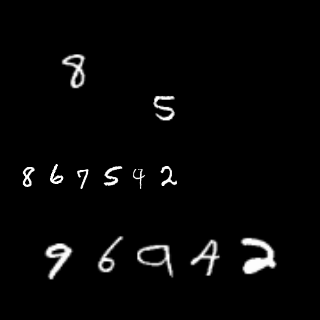 8
5
867592
96942